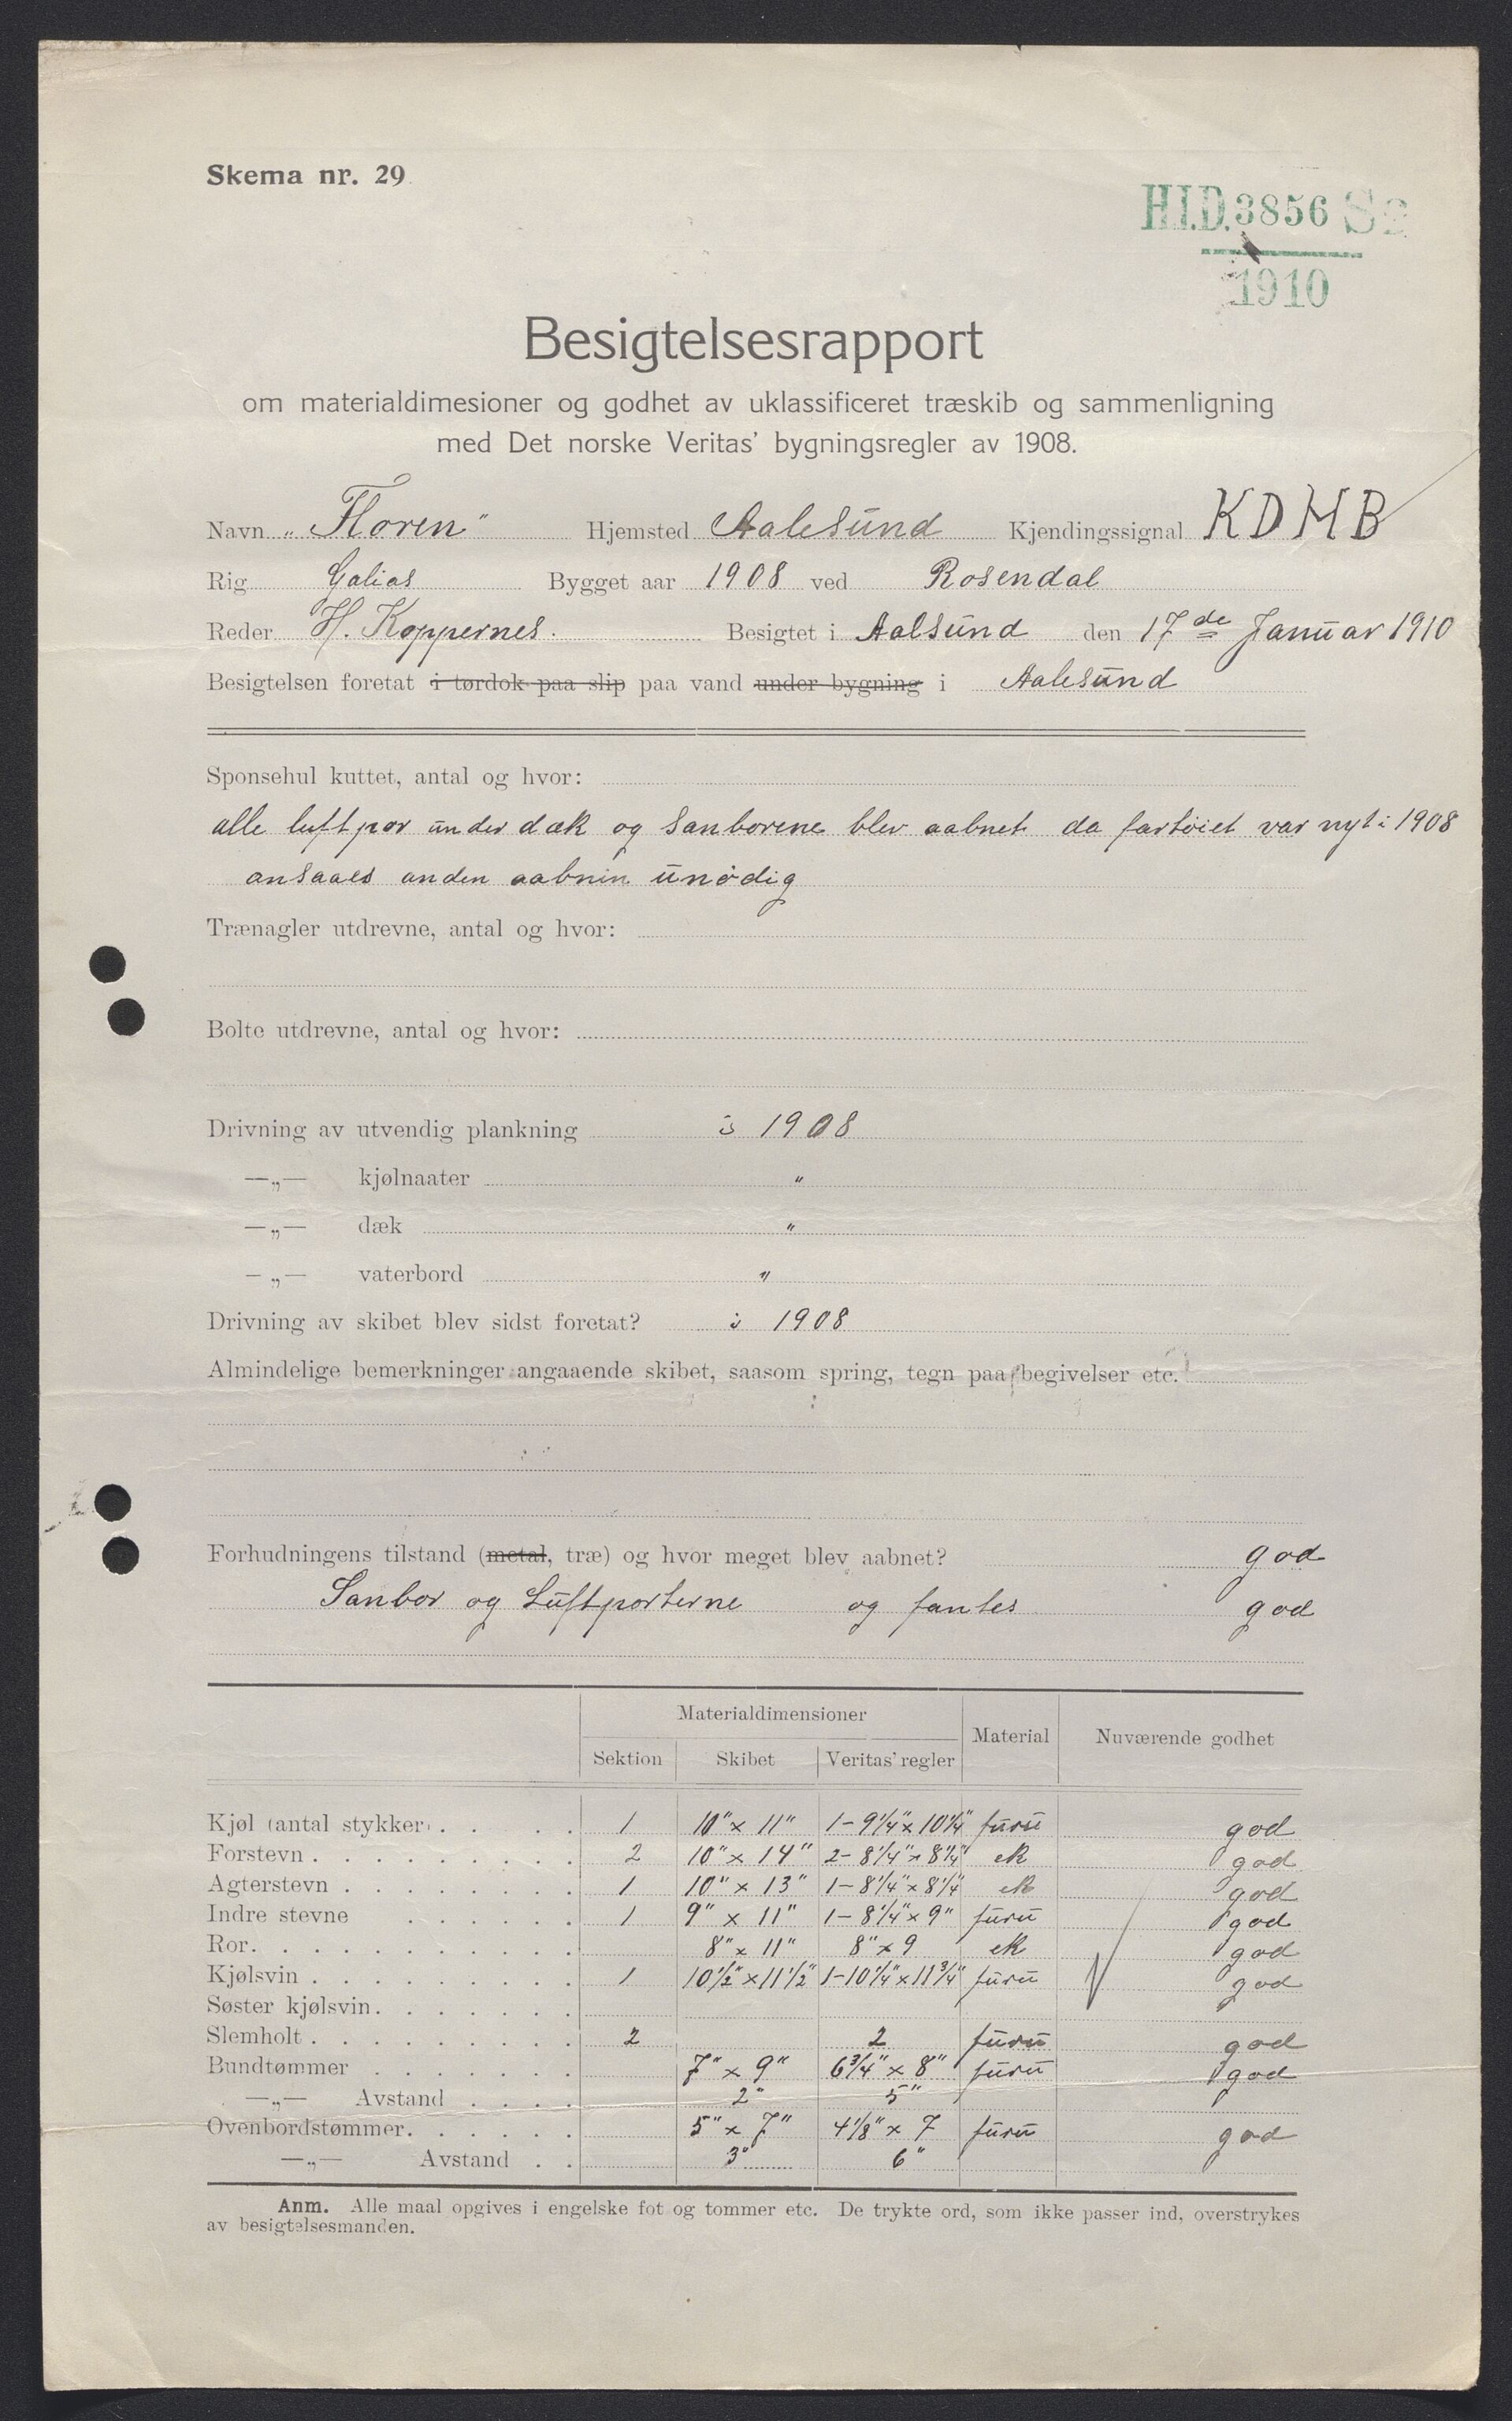 Skema nr. 29
H.I.D. 3856 S
1910
Besigtelsesrapport
om materialdimesioner og godhet av uklassificeret træskib og sammenligning
med Det norske Veritas' bygningsregler av 1908.
Navn „Floren" Hjemsted Aalesund Kjendingssignal KDHB
Rig Galias Bygget aar 1908 ved Rosendal
Reder H. Koppernes. Besigtet i Aalsund den 17de Januar 1910
Besigtelsen foretat i tørdok paa slip paa vand under bygning i Aalesund
Sponsehul kuttet, antal og hvor:
alle luftpor under dæk og Sanborene blev aabnet da fartöiet var nyt i 1908
ansaaes anden aabnin unödig
Trænagler utdrevne, antal og hvor:
Bolte utdrevne, antal og hvor:
Drivning av utvendig plankning i 1908
—„— kjølnaater "
—„— dæk "
—„— vaterbord "
Drivning av skibet blev sidst foretat? i 1908
Almindelige bemerkninger angaaende skibet, saasom spring, tegn paa begivelser etc.
Forhudningens tilstand (metal, træ) og hvor meget blev aabnet? god
Sanbor og Luftporterne og fantes god
Materialdimensioner Material Nuværende godhet
Sektion Skibet Veritas' regler
Kjøl (antal stykker) 1 10" x 11" 1-9 1/4" x 10 1/4" furu god
Forstevn 2 10" x 14" 2-8 1/4" x 8 1/4" ek god
Agterstevn 1 10" x 13" 1-8 1/4" x 8 1/4" ek god
Indre stevne 1 9" x 11" 1-8 1/4" x 9" furu god
Ror 8" x 11" 8" x 9 ek god
Kjølsvin 1 10 1/2" x 11 1/2" 1-10 1/4" x 11 3/4" furu god
Søster kjølsvin
Slemholt 2 2 furu god
Bundtømmer 7" x 9" 6 3/4" x 8" furu god
—„— Avstand 2" 5"
Ovenbordstømmer 5" x 7" 4 1/8" x 7 furu god
—„— Avstand 3" 6"
Anm. Alle maal opgives i engelske fot og tommer etc. De trykte ord, som ikke passer ind, overstrykes
av besigtelsesmanden.